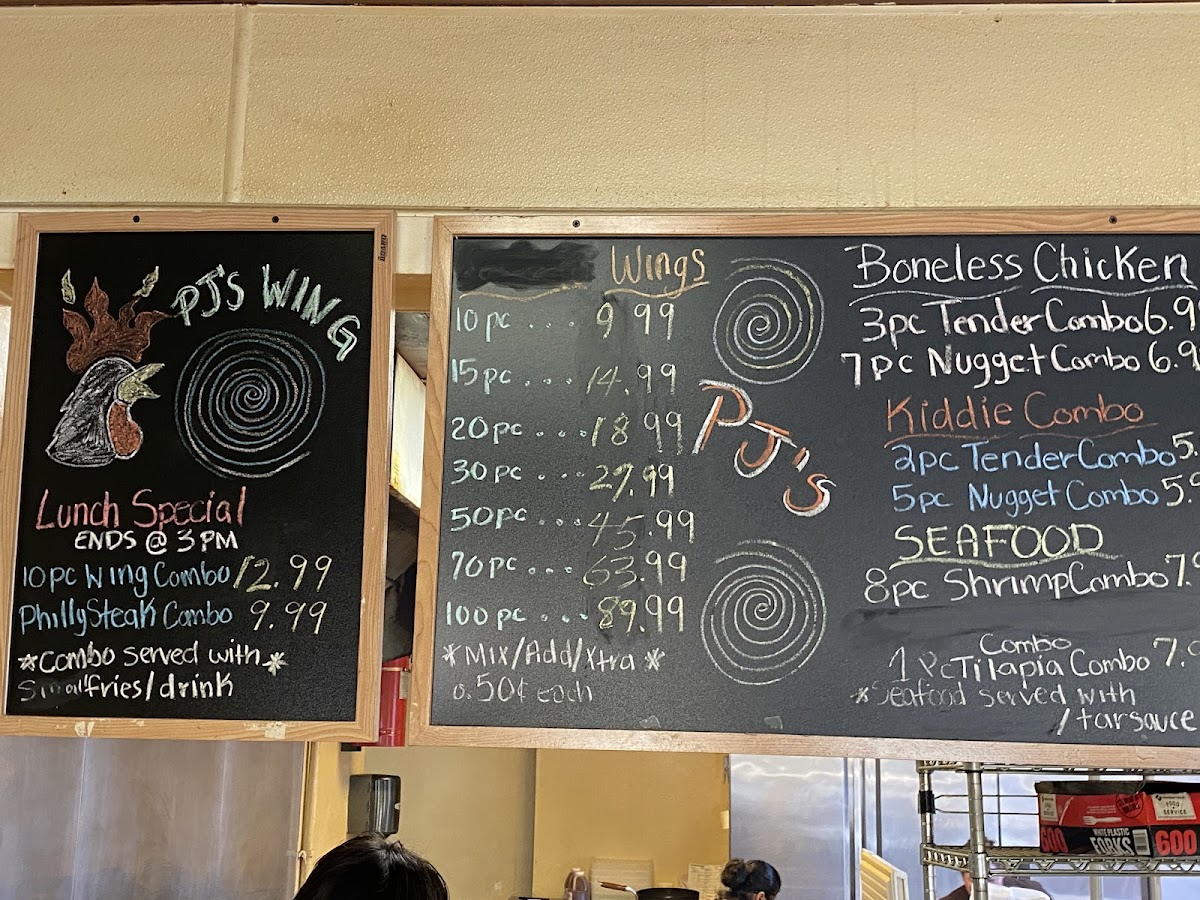 BOARD
PJ'S WING
Lunch Special
ENDS @ 3PM
10pc Wing Combo 12.99
Philly Steak Combo 9.99
*Combo served with*
Small fries/drink
Wings
10 pc . . . 9.99
15 pc . . . 14.99
20 pc . . . 18.99
30 pc . . . 27.99
50 pc . . . 45.99
70 pc . . . 63.99
100 pc . . . 89.99
*Mix/Add/Xtra*
0.50¢ each
PJ's
Boneless Chicken
3pc Tender Combo 6.9
7pc Nugget Combo 6.9
Kiddie Combo
2pc Tender Combo 5.
5pc Nugget Combo 5.9
SEAFOOD
8pc Shrimp Combo 7.9
Combo
1 Pc Tilapia Combo 7.9
*Seafood served with
/tarsauce
FOOD
SERVICE
600
WHITE PLASTIC
FORKS
600